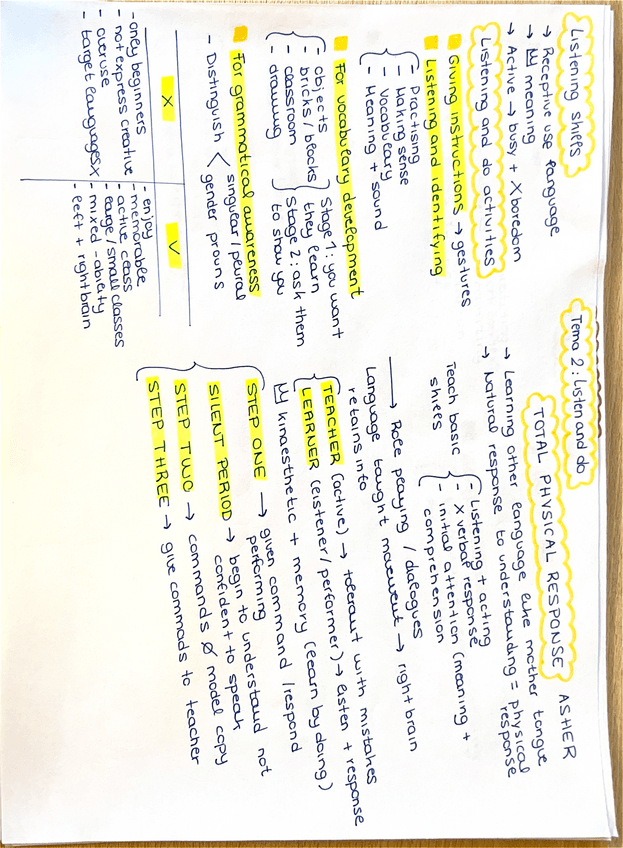 Tema 2: Listen and do
TOTAL PHYSICAL RESPONSE ASHER
→ Learning other language like mother tongue
→ Natural response to understanding = physical
response
Teach basic
skills
- Listening + acting
- X verbal response
- initial attention (meaning +
comprehension
→ Role playing / dialogues
Language taught movement → right brain
retains into
TEACHER (active) → tolerant with mistakes
LEARNER (listener/performer) → listen + response
kinaesthetic + memory (learn by doing)
STEP ONE → given command / respond
performing
SILENT PERIOD → begin to understand not
confident to speak
STEP TWO → commands Ø model copy
STEP THREE → give commads to teacher
Listening skills
→ Receptive use language
→ meaning
→ Active → busy + X boredom
Listening and do activities
Giving instructions → gestures
Listening and identifying
- Practising
- Making sense
- Vocabulary
- Meaning + sound
For vocabulary development
- objects
- bricks/blocks
- classroom
- drawing
Stage 1: you want
they learn
Stage 2: ask them
to show you
For grammatical awareness
- Distinguish < singular/plural
gender prouns
X
- only beginners
- not express creative
- overuse
- target languages X
V
- enjoy
- memorable
- active class
- large/small classes
- mixed-ability
- left + right brain